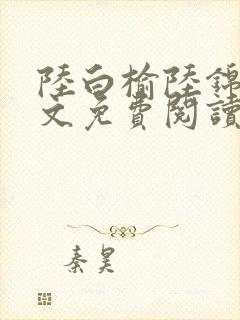 陸白榆陸錦
文免費閱讀
秦昊